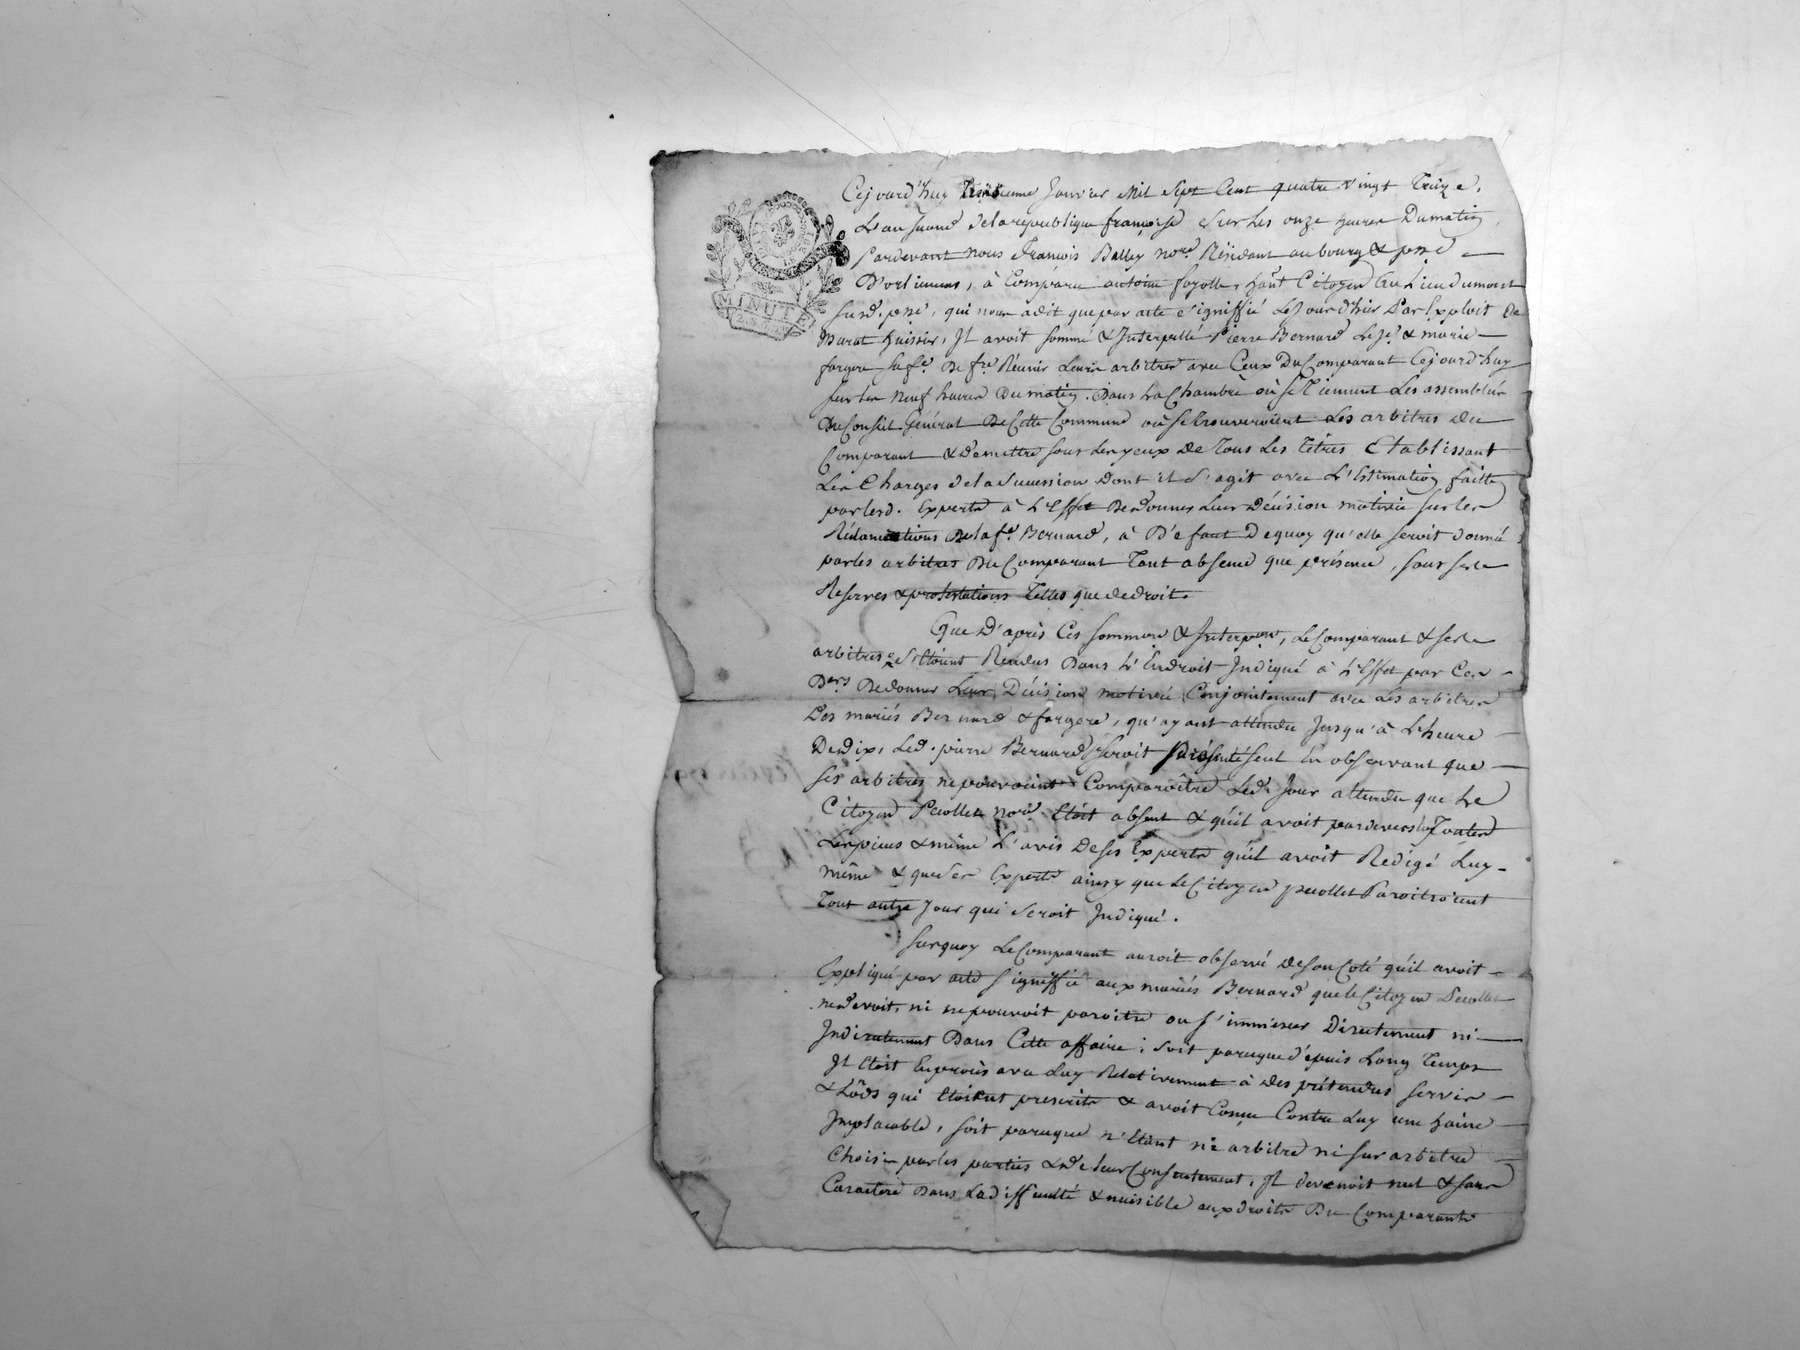 MINUTE
2. S. 8. D.
Cejourd'huy treizieme Janvier Mil Sept Cent quatre Vingt Treize,
L'an second dela republique françoise Sur Les onze heures Dumatin
Pardevant nous François Balley nore. Résidant au bourg & psse.
D'orlienas, à Comparu antoine fayolle, hant Citoyen au Lieu dumoret
susd. psse, qui nous adit que par acte signiffié Lejourd'hier Par Exploit de
Marat huissier, Jl avoit sommé & Jnterpellé Pierre Bernard Leje. & marie
fargere safe. De fre. Réunir Leurs arbitres avec Ceux Du Comparant Cejourd'huy
sur les neuf heures Du matin. Dans La Chambre où se Tiennent Les assemblées
Du Conseil Général De Cette Commune où se trouveroient Les arbitres du
Comparant & de mettre sous Les yeux de Tous Les Titres Etablissant
Les Charges dela succession dont il s'agit avec L'Estimation faitte
par lesd. Experts à L'Effet De donner Leur Décision motivée sur les
Réclamations De la fe. Bernard, à Défaut De quoy qu'elle seroit donnée
par les arbitres Du Comparant Tant absence que présence, sous ses
Reserves & protestations Telles que de droit.
Que D'après Ces sommon & Jnterpon, Le Comparant & ses
arbitres se S'étoient Rendus Dans L'Endroit Jndiqué à L'Effet par Ces
Ders De donner Leur Décision motivée Conjointement avec Les arbitres
Des mariés Bernard & fargere, qu'ayant attendu Jusqu'à L'heure
De dix, Led. pierre Bernard seroit Présenté seul En observant que
ses arbitres ne pouvoient Comparoître Led. Jour attendu que Le
Citoyen Pecollet nore. Etoit absent & qu'il avoit pardevers luy toutes
Les pieces & même L'avis De ses Experts qu'il avoit Redigé Luy-
même & que ses Experts ainsy que Le Citoyen pecollet Paroitroient
Tout autre Jour qui seroit Jndiqué.
Surquoy Le Comparant auroit observé De son Coté qu'il avoit
Expliqué par acte signiffié aux mariés Bernard que le Citoyen Pecollet
ne devoit, ni ne pouvoit paroitre ou s'immiscer Directement ni
Jndirectement Dans Cette affaire; soit parceque depuis Long Temps
Jl Etoit En procès avec Luy Relativement à des prétendus servis
& Lods qui Etoient prescrits & avoit Conçu Contre Luy une haine
Jmplacable, soit parceque n'Etant ni arbitre ni sur arbitre
Choisis par les parties & de leur Consentement, Jl devenoit nul & sans
Caractere Dans La difficulté & nuisible aux droits Du Comparant